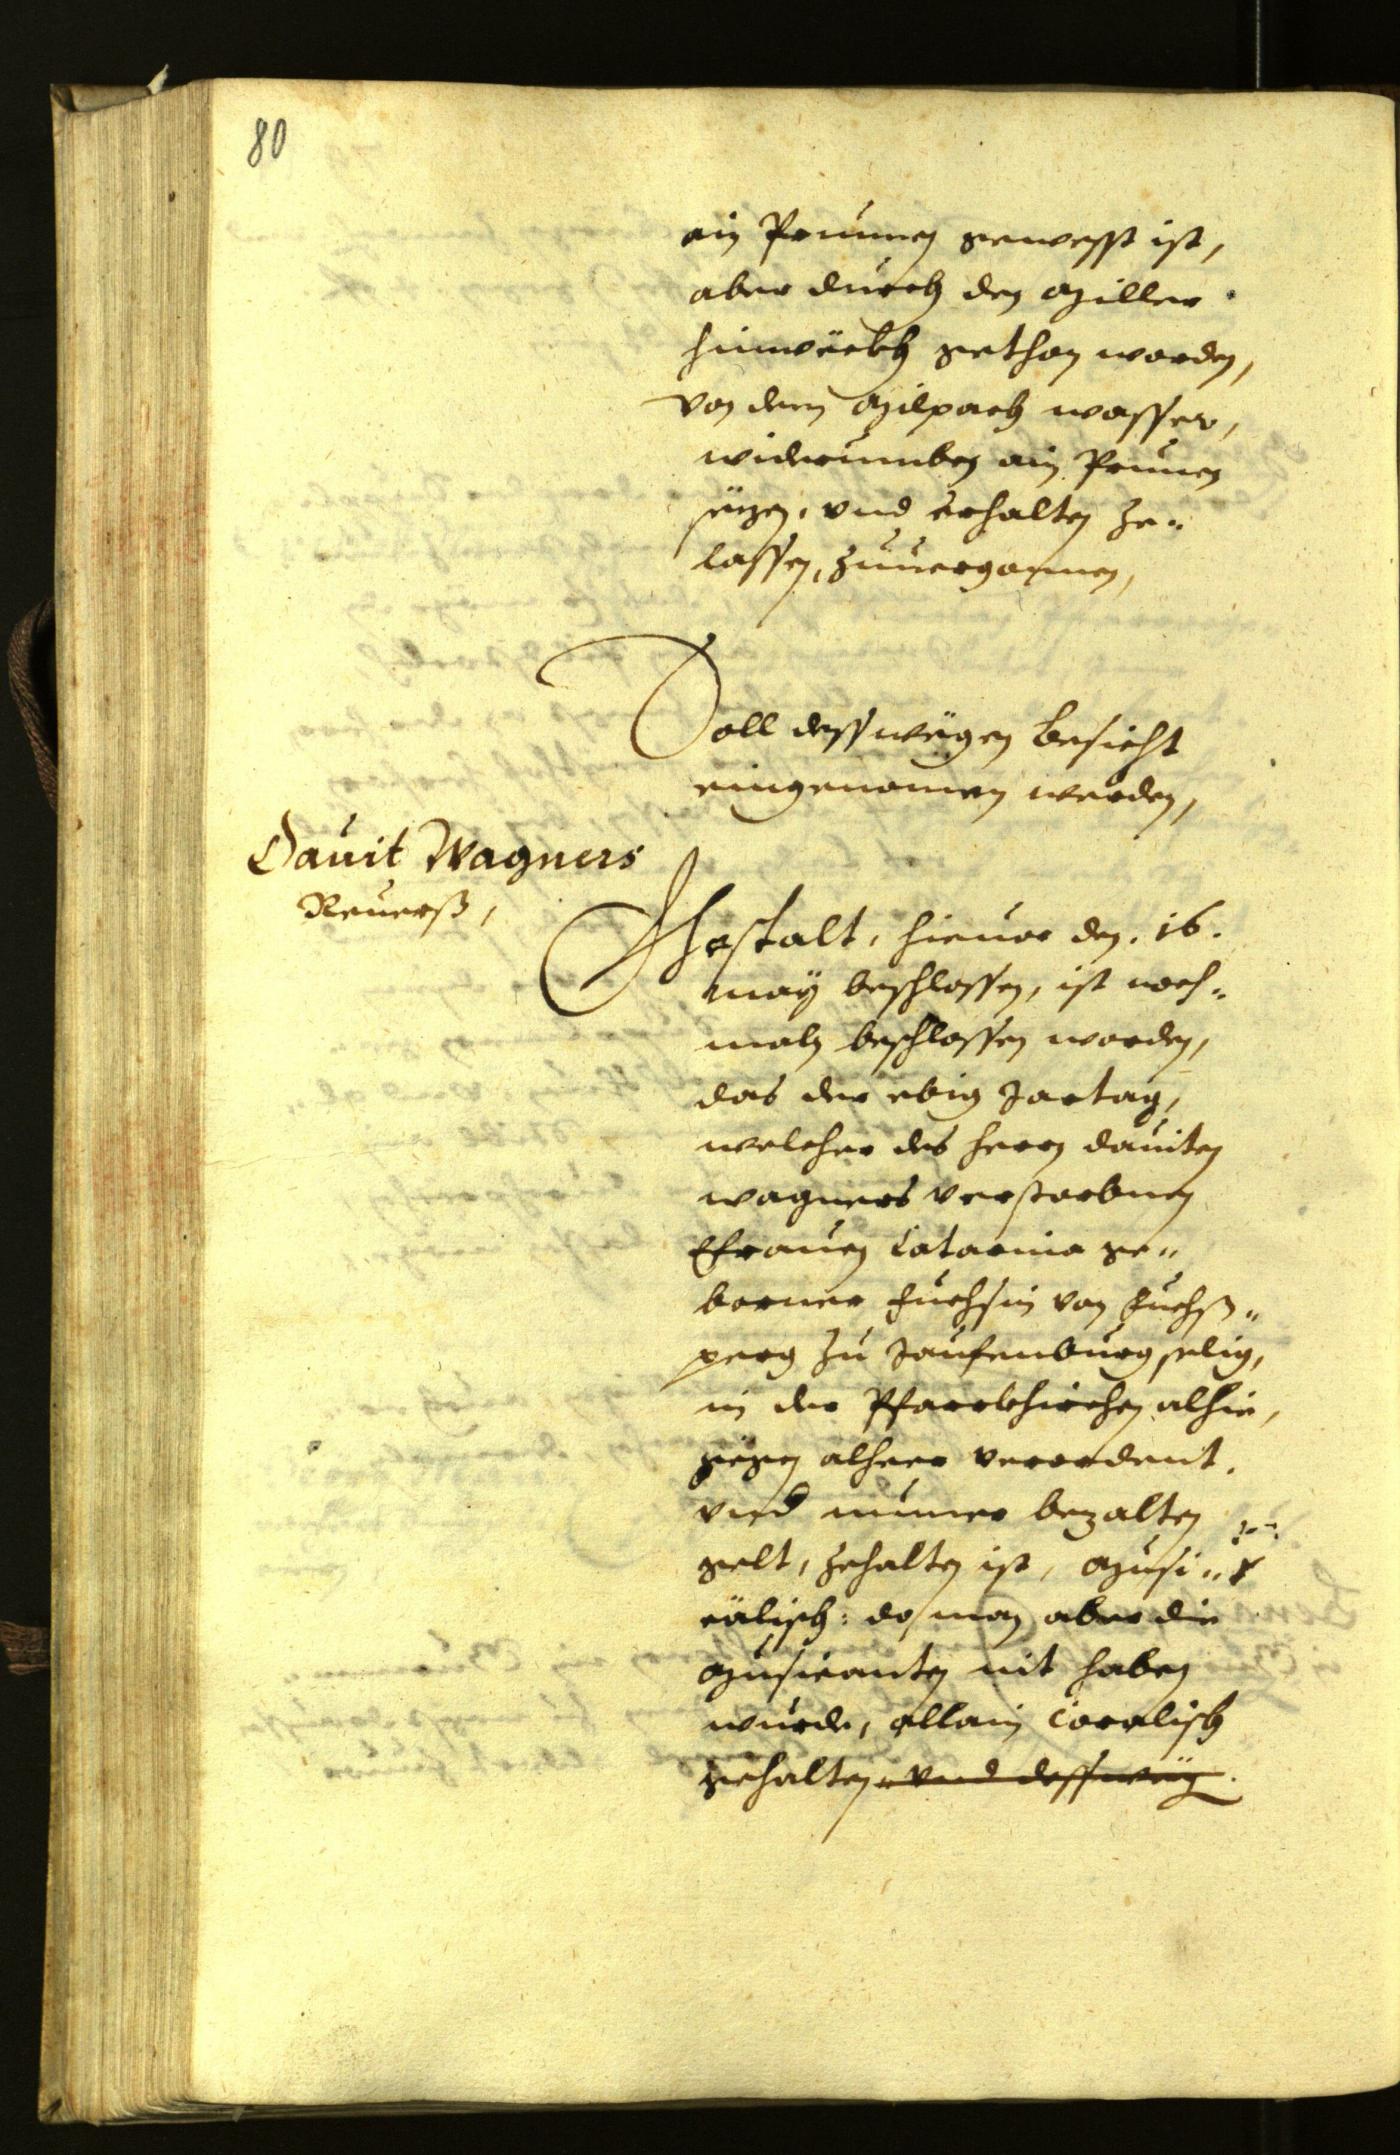 80
ain Prunnen gewesst ist,
aber durch den Miller
hinwëckh gethon worden,
von dem Milpach wasser,
widerumben ain Prunen
sëzen, vnd erhalten ze„
lassen, zuuergonnen,
Soll desswëgen besicht
eingenomen werden,
Dauit Wagners
Reuerß,
Gestalt, hieuor den. 16.
may beschlossen, ist noch„
maln beschlossen worden,
das der ebig Jartag,
welcher des herrn dauiten
wagners verstorbnen
Efrauen Catarina ge„
borner fuchsin von fuchß„
perg zu Jaufenburg selig,
in der Pfarrkhirchen alhie,
gegen alheer verordent.
vnd numer bezalten
gelt, zehalten ist, Musi„
calisch: do man aber die
Musicanten nit haben
wurde, allain Coralisch
gehalten vnd dessweg